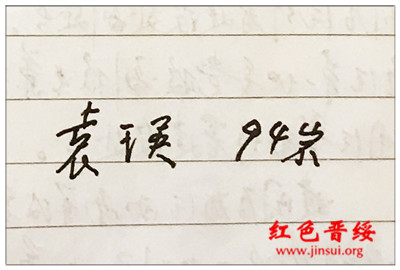 袁瑛 94岁
红色晋绥
www.jinsui.org